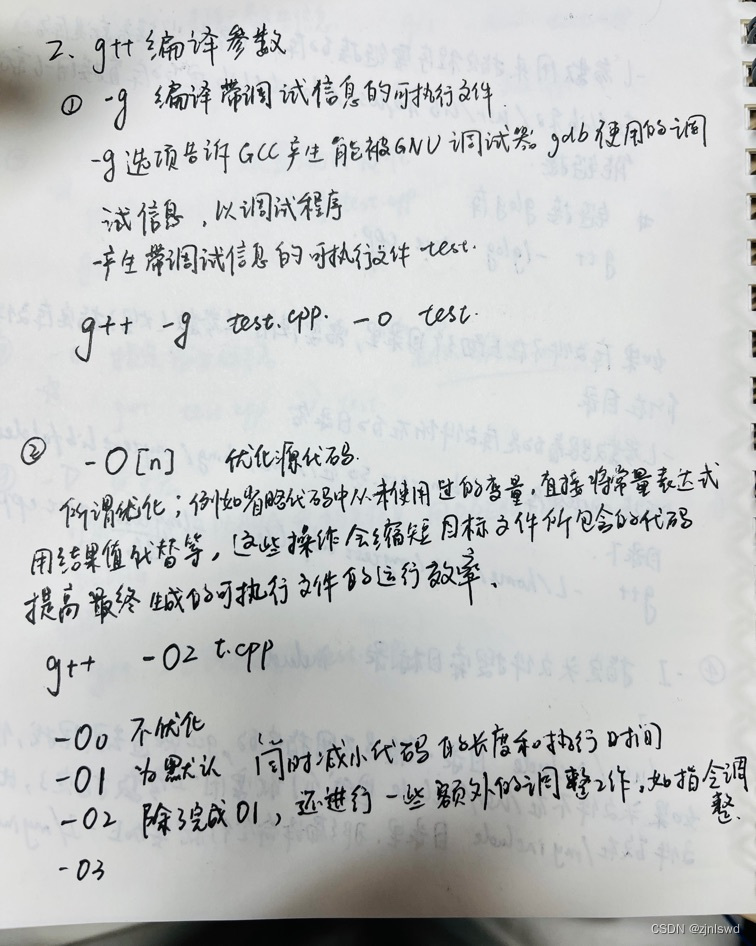 2. g++ 编译参数
① -g 编译带调试信息的可执行文件.
-g 选项告诉 GCC 产生能被GNU调试器 gdb使用的调
试信息，以调试程序
-产生带调试信息的可执行文件 test.
g++ -g test.cpp. -o test.
② -O[n] 优化源代码.
所谓优化；例如省略代码中从未使用过的变量，直接将常量表达式
用结果值代替等，这些操作会缩短目标文件所包含的代码
提高最终生成的可执行文件的运行效率.
g++ -O2 t.cpp
-O0 不优化
-O1 为默认 同时减小代码的长度和执行时间
-O2 除了完成O1，还进行一些额外的调整工作，如指令调
整.
-O3
CSDN @zjnlswd